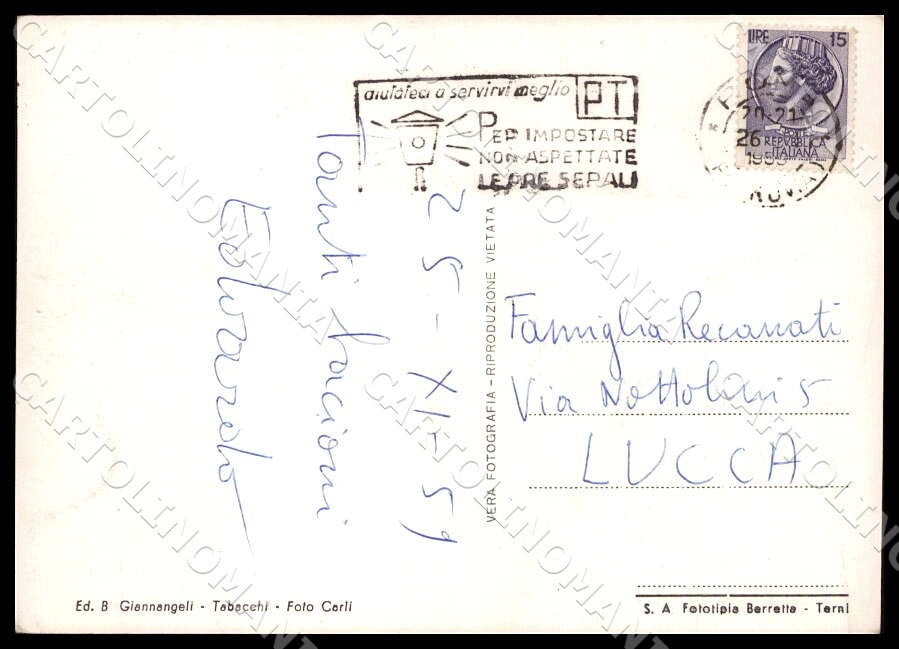 aiutateci a servirvi meglio PT
PER IMPOSTARE
NON ASPETTATE
LE ORE SERALI
LIRE 15
REPVBBLICA
ITALIANA
20-21
26
25-XI-59
Tanti bacioni
Edvardo
VERA FOTOGRAFIA - RIPRODUZIONE VIETATA
Famiglia Recanati
Via Nottolini 5
LUCCA
Ed. B Giannangeli - Tabacchi - Foto Carli
S. A. Fototipia Berretta - Terni
CARTOLINOMANIA